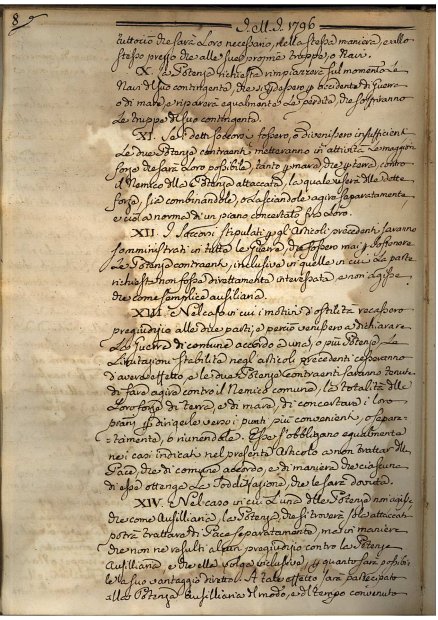 8
Dell'A. 1796
tuttociò che sarà Loro necessario, nella stessa maniera, e allo
stesso prezzo che alle sue proprie truppe, o Navi.
X. La Potenza richiesta rimpiazzerà sul momento Le
Navi di suo contingente, che si perdessero per accidenti di Guerra
o di mare, e riparerà egualmente Le perdite, che soffriranno
Le truppe di suo contingente.
XI. Se i detti soccorsi fossero, o divenissero insufficienti
Le due Potenze contraenti metteranno in attività Le maggiori
forze che sarà Loro possibile, tanto per mare, che per terra, contro
il Nemico della Potenza attaccata, la quale userà delle dette
forze, sia combinandole, o Lasciandole agire separatamente
e ciò a norma di un piano concertato fra Loro.
XII. I soccorsi stipulati per gli Articoli precedenti saranno
somministrati in tutte le Guerre, che fossero mai per sostenere
Le Potenze contraenti, inclusive in quelle in cui La parte
richiesta non fosse direttamente interessata, e non agisse
che come semplice ausiliaria.
XIII. Nel caso in cui i motivi d'ostilità recassero
pregiudizio alle dette parti, e perciò venissero a dichiarare
La Guerra di comune accordo a una, o più Potenze, Le
Limitazioni stabilite negli articoli precedenti cesseranno
d'avere effetto, e le due Potenze Contraenti saranno tenute
di fare agire contro il Nemico comune, la totalità delle
Loro forze di terra, e di mare, di concertare i loro
piani per dirigerle verso i punti più convenienti, o separa-
tamente, o riunendole. Esse s'obbligano egualmente
ne' casi indicati nel presente Articolo a non trattar di
Pace, che di comune accordo, e di maniera che ciascuna
di esse ottenga La soddisfazione, che le sarà dovuta.
XIV. Nel caso in cui Luna delle Potenze non agisse
che come Ausiliaria, La Potenza, che si troverà sola attaccata
potrà trattare di Pace separatamente, ma in maniera
che non ne resulti alcun pregiudizio contro La Potenza
Ausiliaria, e che essa volga inclusive, per quanto sarà possibi-
le a suo vantaggio diretto. A tale effetto sarà partecipato
alla Potenza Ausiliaria il modo, e il tempo convenuto